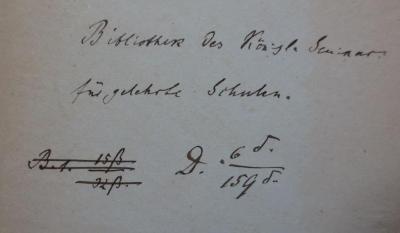 Bibliothek des Königl. Seminar
für gelehrte Schulen.
D. 6 d.
159 d.